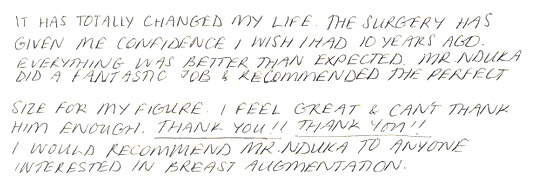 IT HAS TOTALLY CHANGED MY LIFE. THE SURGERY HAS
GIVEN ME CONFIDENCE I WISH I HAD 10 YEARS AGO.
EVERYTHING WAS BETTER THAN EXPECTED. MR NDUKA
DID A FANTASTIC JOB & RECOMMENDED THE PERFECT
SIZE FOR MY FIGURE. I FEEL GREAT & CAN'T THANK
HIM ENOUGH. THANK YOU!! THANK YOU!!
I WOULD RECOMMEND MR. NDUKA TO ANYONE
INTERESTED IN BREAST AUGMENTATION.